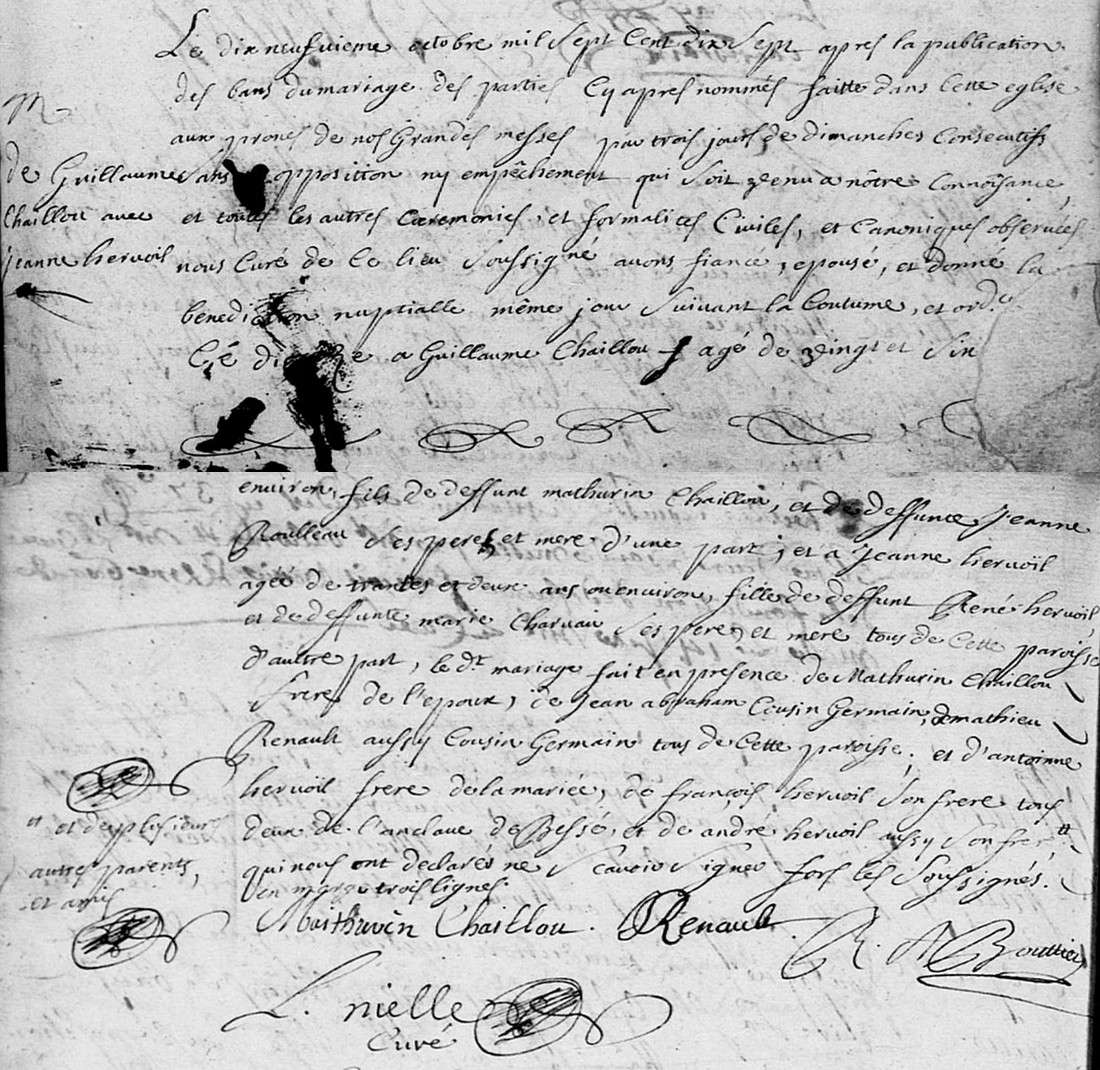 Le dixneufvieme octobre mil sept cent dix sept apres la publication
des bans du mariage des parties cy apres nommés faitte dans cette eglise
aux prones de nos Grandes messes par trois jours de dimanches consecutifs
sans opposition ny empêchement qui soit venu a nôtre connoisance,
et toutes les autres cæremonies, et formalites civiles, et canoniques observées
nous curé de ce lieu soussigné avons fiancé, epousé, et donné la
benediction nuptialle même jour suivant la coutume, et ord.
a Guillaume Chaillou agé de vingt et six
M
de Guillaume
Chaillou avec
jeanne hervoil
environ, fils de deffunt mathurin Chaillou, et de deffunte Jeanne
Roulleau ses peres et mere d'une part, et a Jeanne hervoil
agée de trantes et deux ans ou environ, fille de deffunt René hervoil,
et de deffunte marie Charuau ses pere, et mere tous de cette paroisse
d'autre part, le dt mariage fait en presence de Mathurin Chaillou
frere de l'epoux, de jean abraham Cousin Germain, de mathieu
Renault aussy Cousin Germain tous de cette paroisse, et d'antoinne
hervoil frere de la mariée, de françois hervoil son frere tous
deux de l'anclave de Bessé, et de andré hervoil aussy son frere "
qui nous ont declarés ne scavoir signer fors les soussignés.
en marge trois lignes.
" et de plusieurs
autres parents,
et amis
Maithurin Chaillou. Renault
R. A Bouttier
L. nielle
Curé